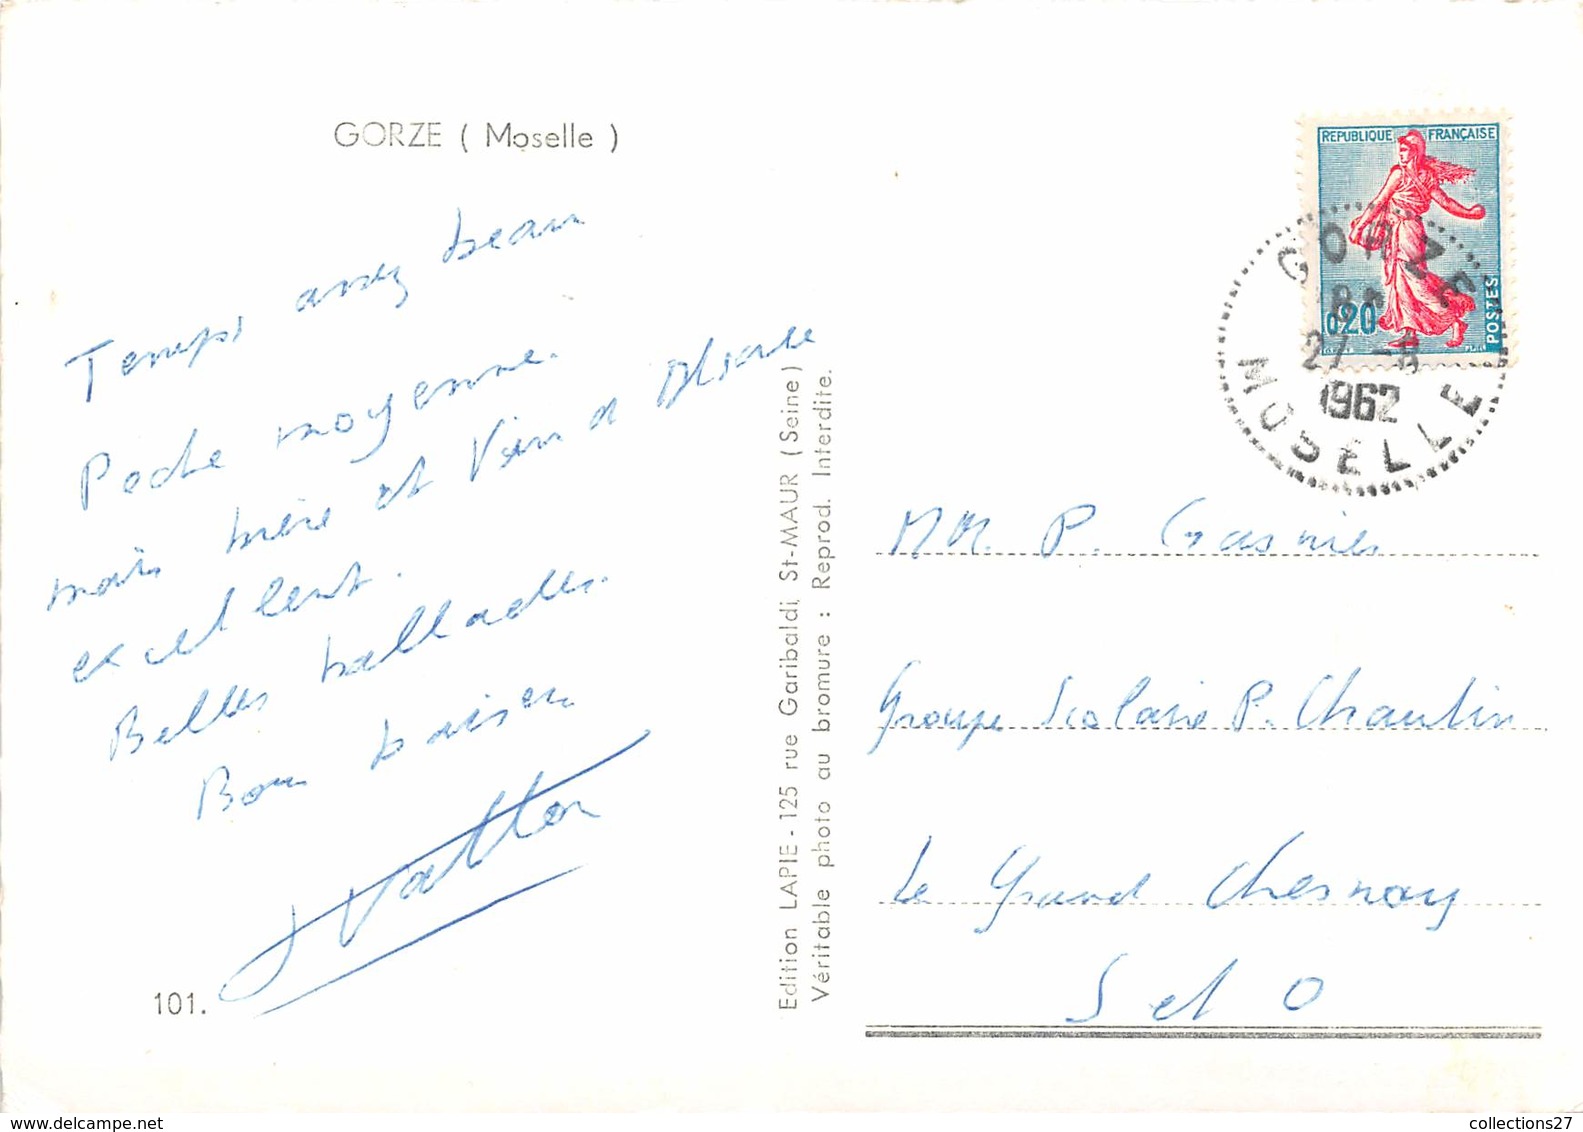 GORZE ( Moselle )
Temps assez beau
Peche moyenne.
mais bière et Vin d'Alsace
excellent.
Belles ballades.
Bons baisers
101.
Edition LAPIE - 125 rue Garibaldi, St-MAUR (Seine)
Véritable photo au bromure : Reprod. Interdite.
REPUBLIQUE FRANÇAISE
0,20
POSTES
GORZE
1962
MOSELLE
MM. P. Gasnier
Groupe Scolaire P.
Le Grand Chesnay
S et O
collections27